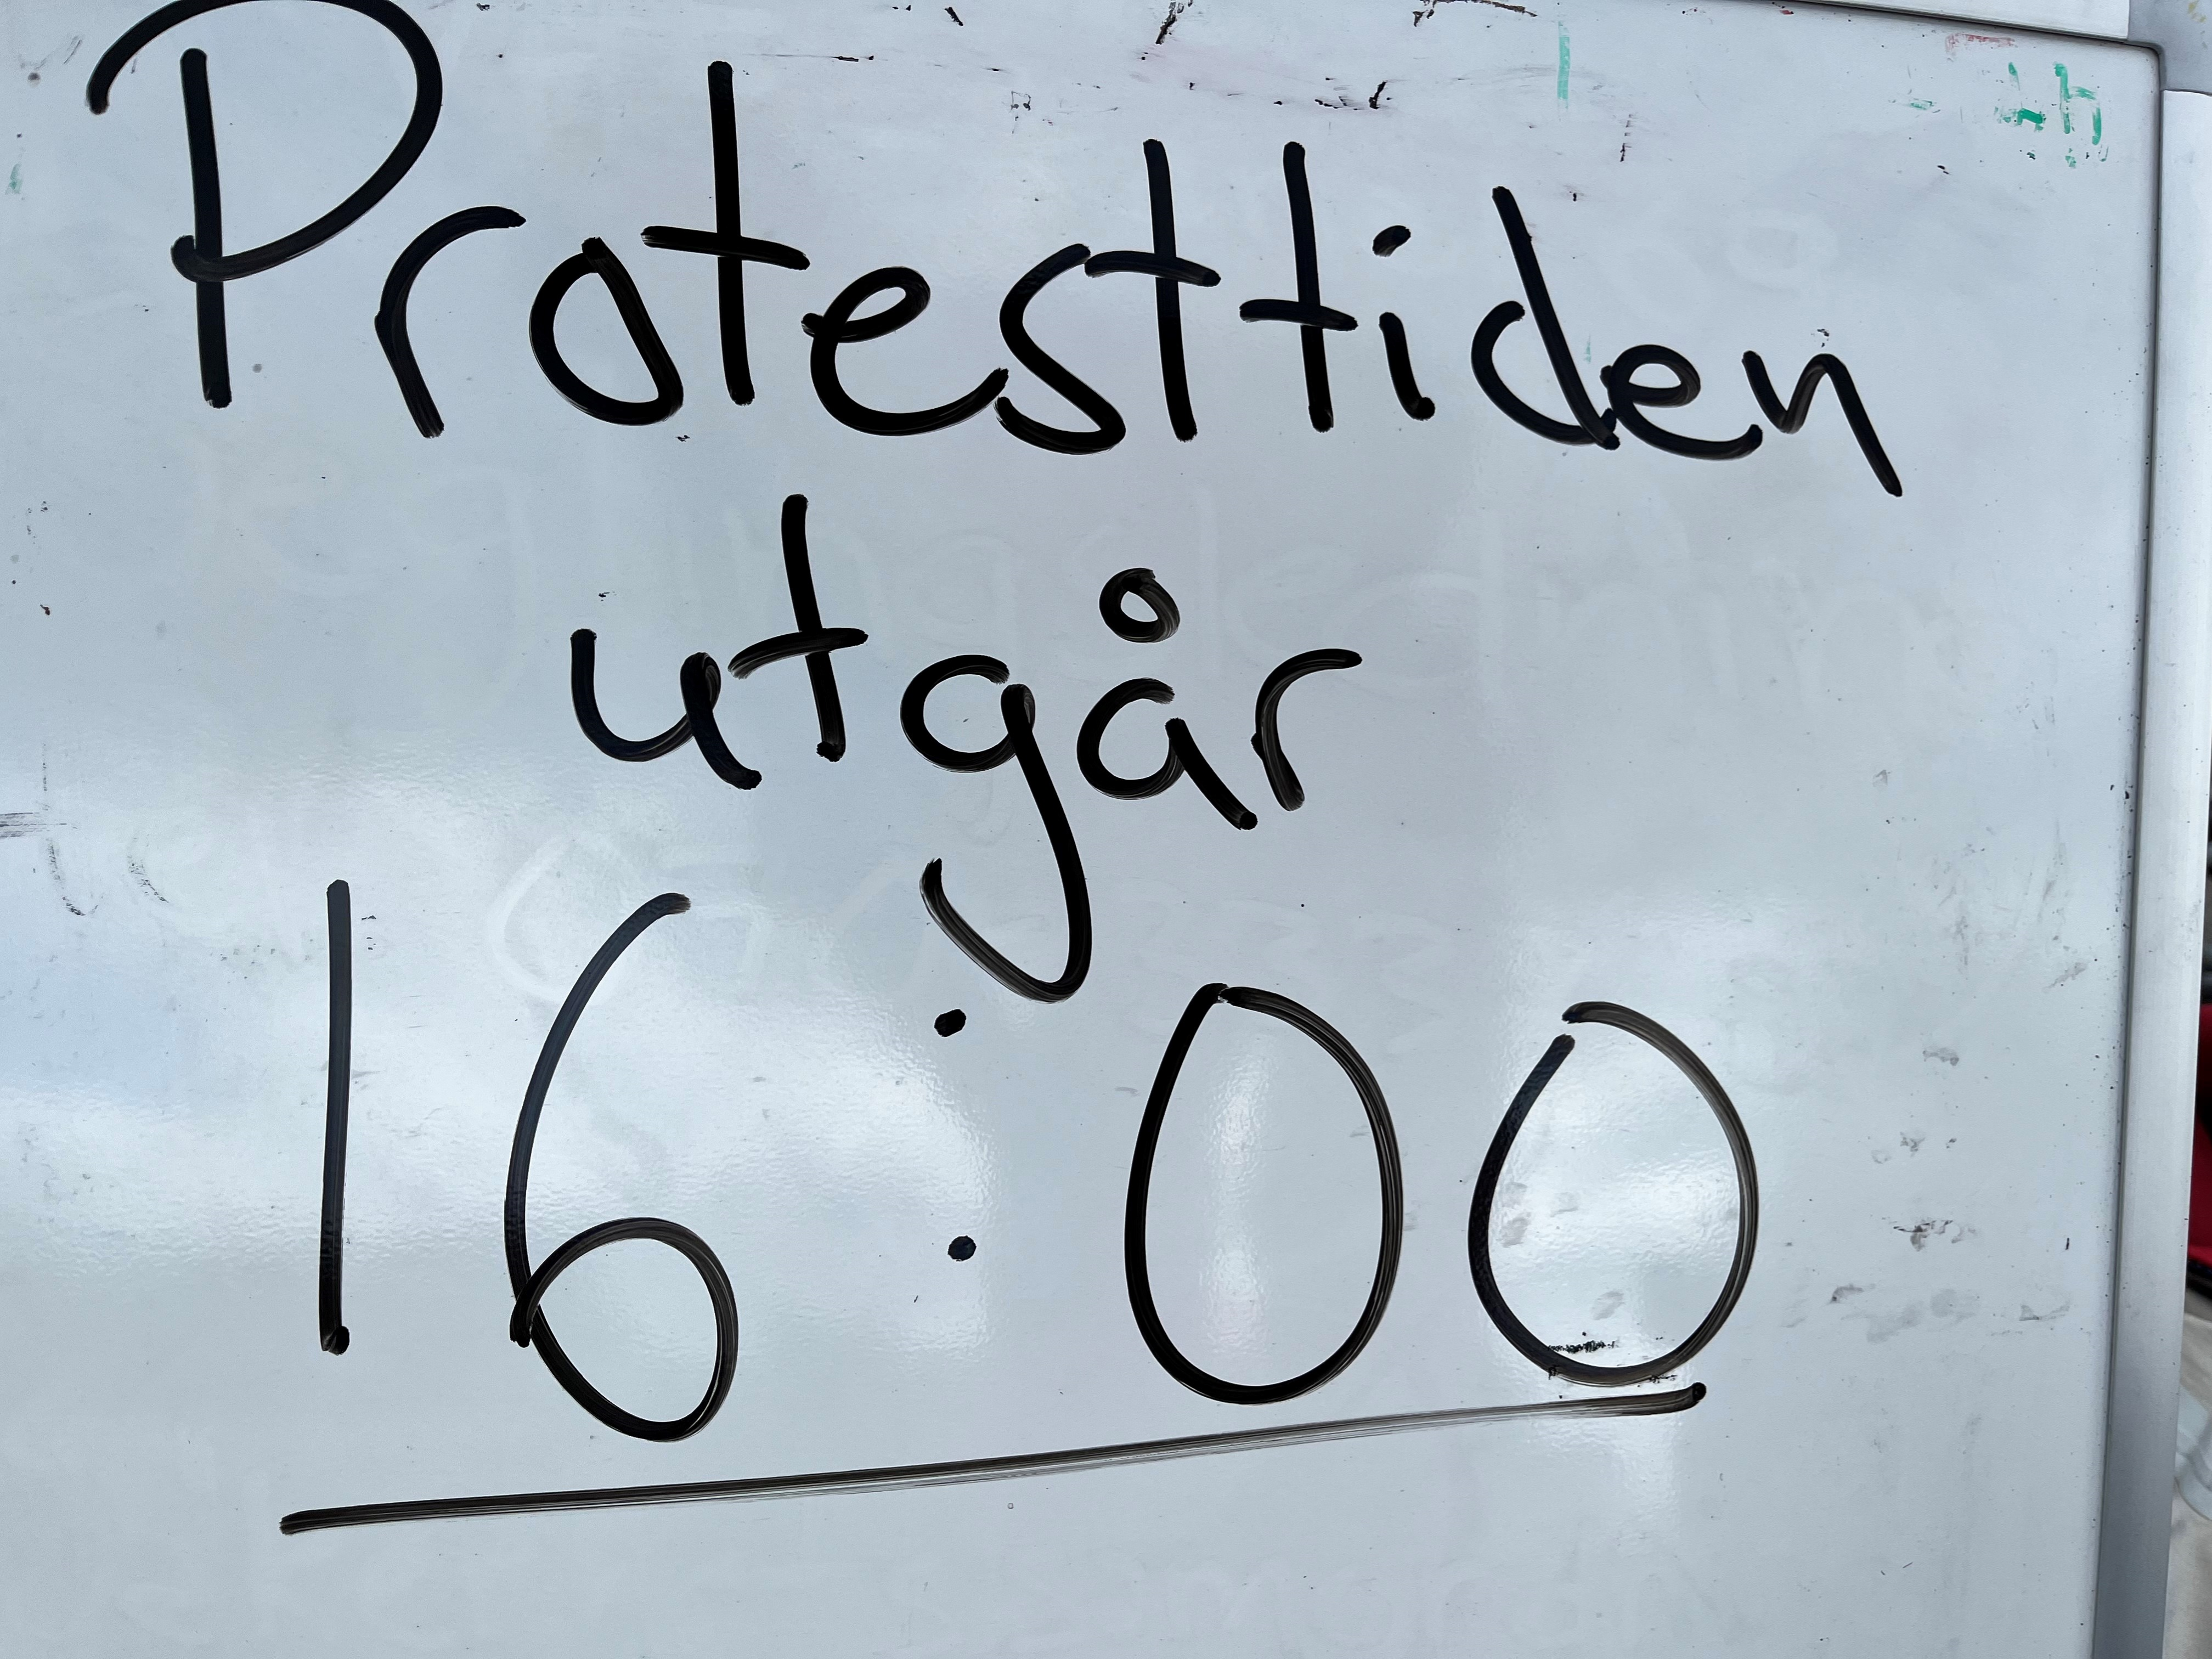 Protesttiden
utgår
16:00